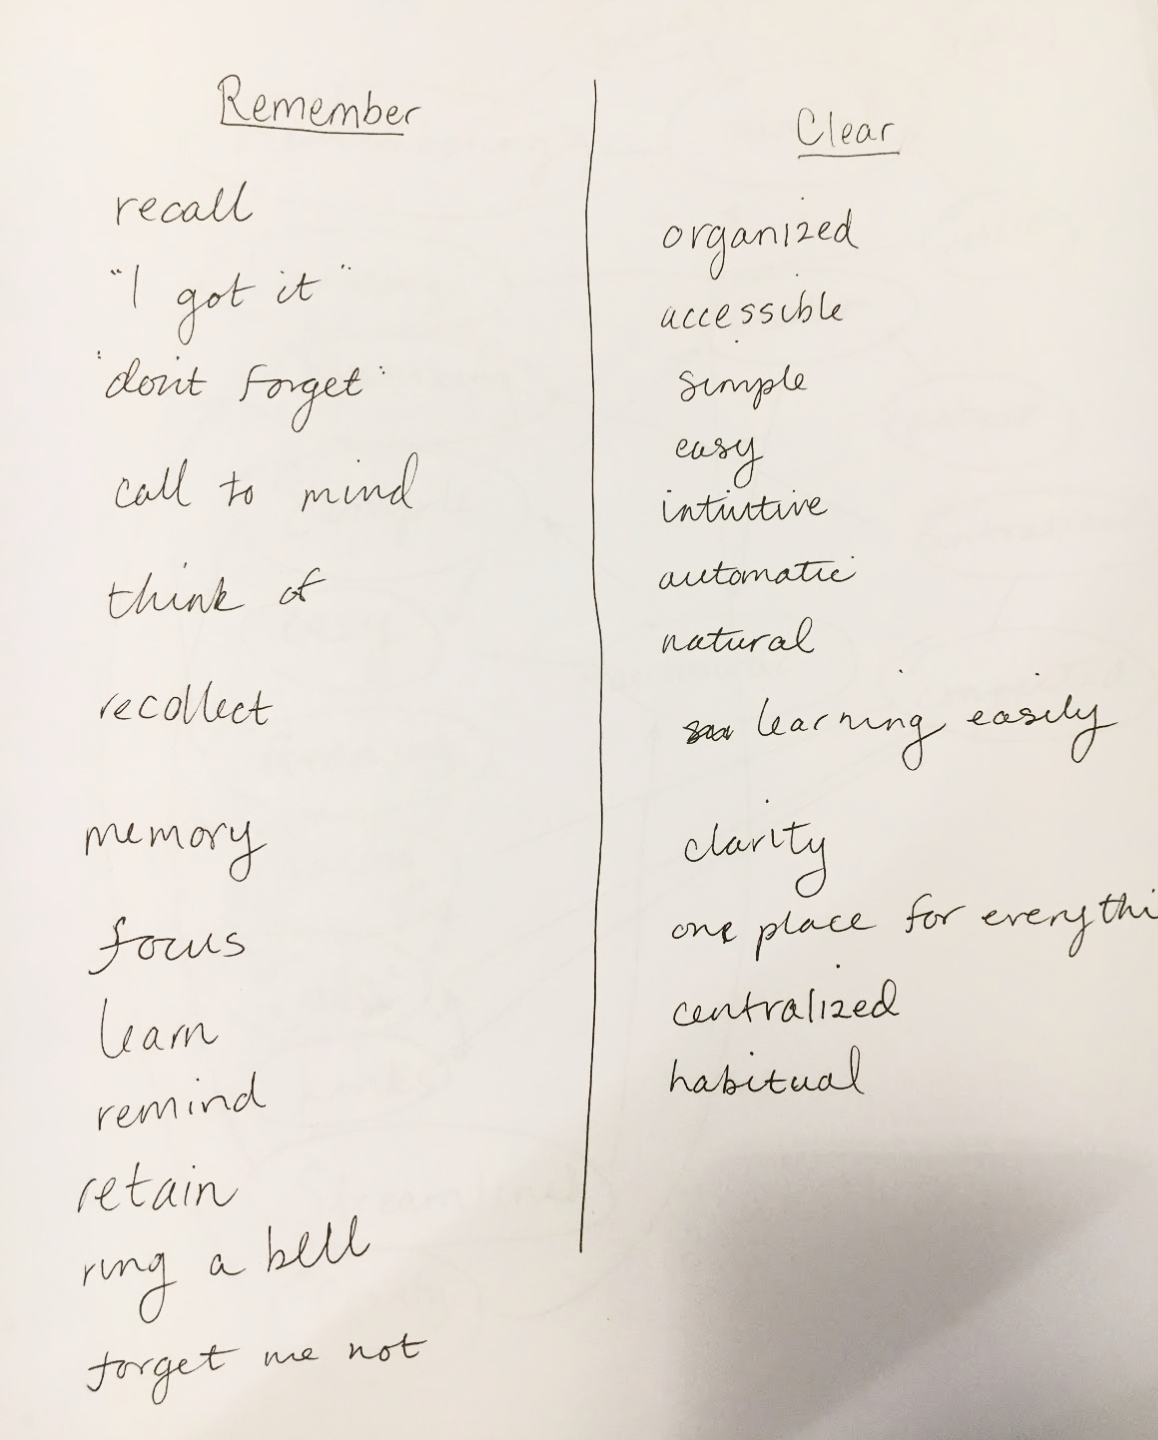 Remember
recall
"I got it"
"don't forget"
call to mind
think of
recollect
memory
focus
learn
remind
retain
ring a bell
forget me not
Clear
organized
accessible
simple
easy
intiutive
automatic
natural
learning easily
clarity
one place for everythi
centralized
habitual